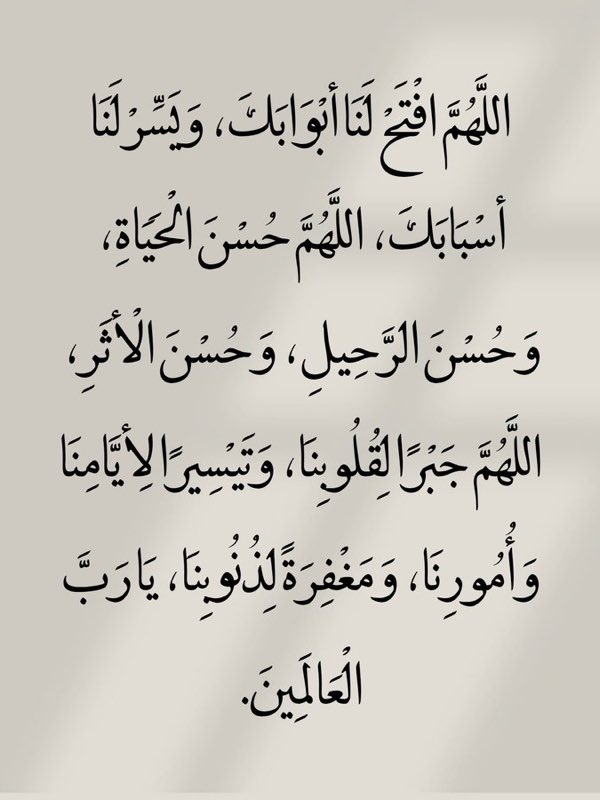 اللَّهُمَّ افْتَحْ لَنَا أَبْوَابَكَ، وَيَسِّرْ لَنَا
أَسْبَابَكَ، اللَّهُمَّ حُسْنَ الْحَيَاةِ،
وَحُسْنَ الرَّحِيلِ، وَحُسْنَ الْأَثَرِ،
اللَّهُمَّ جَبْرًا لِقُلُوبِنَا، وَتَيْسِيرًا لِأَيَّامِنَا
وَأُمُورِنَا، وَمَغْفِرَةً لِذُنُوبِنَا، يَا رَبَّ
الْعَالَمِينَ.